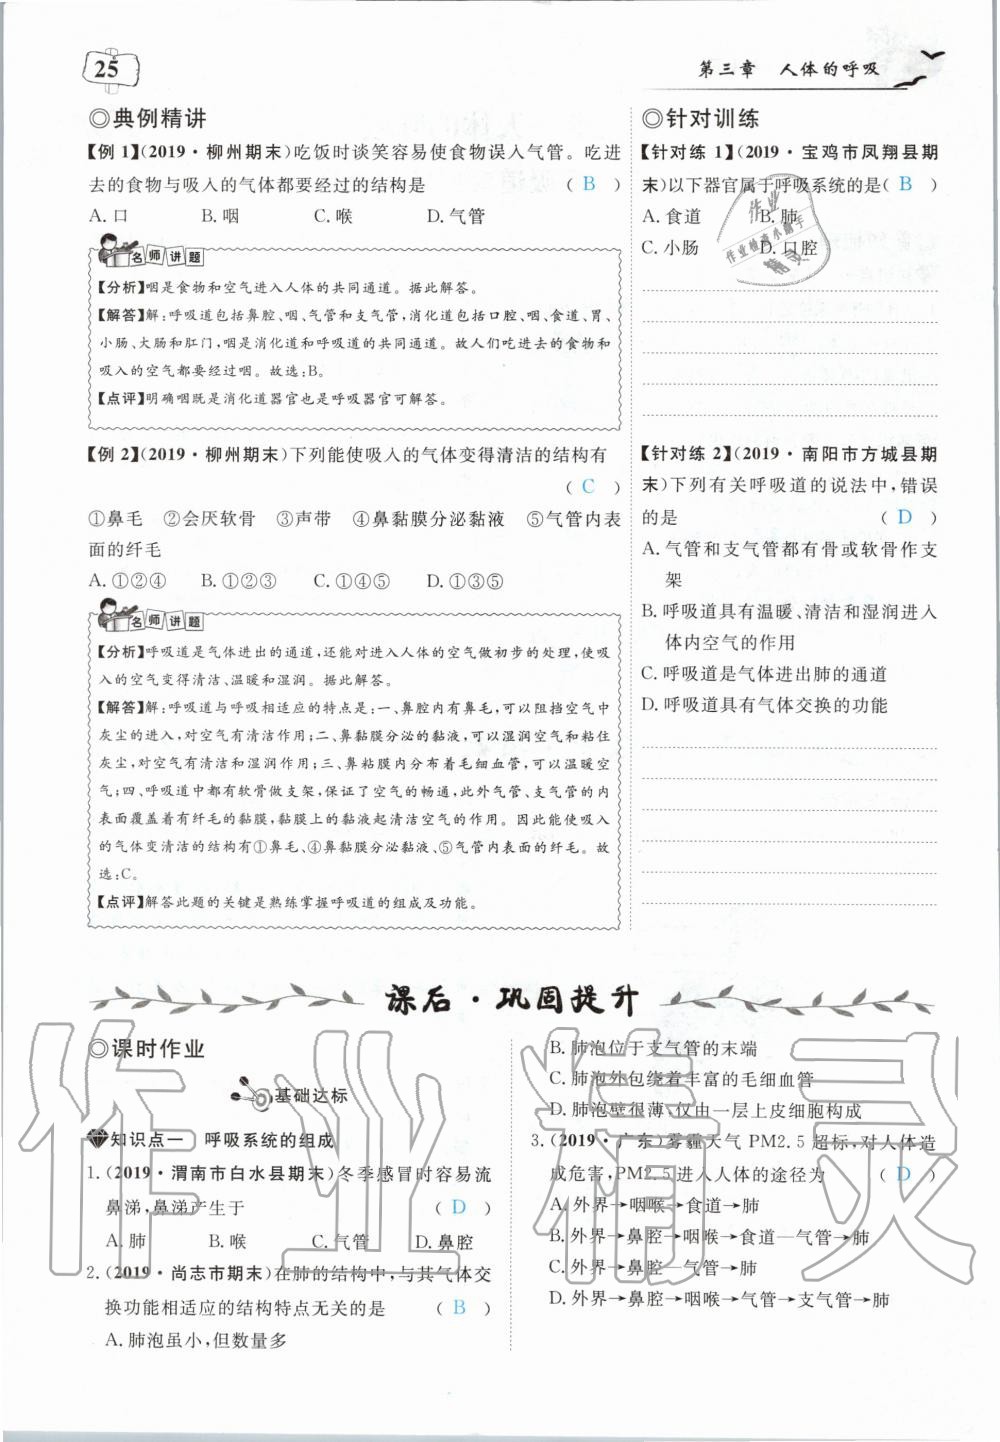 25
第三章　人体的呼吸
◎典例精讲
【例 1】(2019·柳州期末)吃饭时谈笑容易使食物误入气管。吃进
去的食物与吸入的气体都要经过的结构是　( B )
A. 口　B. 咽　C. 喉　D. 气管
名师讲题
【分析】咽是食物和空气进入人体的共同通道。据此解答。
【解答】解:呼吸道包括鼻腔、咽、气管和支气管,消化道包括口腔、咽、食道、胃、
小肠、大肠和肛门,咽是消化道和呼吸道的共同通道。故人们吃进去的食物和
吸入的空气都要经过咽。故选:B。
【点评】明确咽既是消化道器官也是呼吸器官可解答。
【例 2】(2019·柳州期末)下列能使吸入的气体变得清洁的结构有
( C )
①鼻毛　②会厌软骨　③声带　④鼻黏膜分泌黏液　⑤气管内表
面的纤毛
A. ①②④　B. ①②③　C. ①④⑤　D. ①③⑤
名师讲题
【分析】呼吸道是气体进出的通道,还能对进入人体的空气做初步的处理,使吸
入的空气变得清洁、温暖和湿润。据此解答。
【解答】解:呼吸道与呼吸相适应的特点是:一、鼻腔内有鼻毛,可以阻挡空气中
灰尘的进入,对空气有清洁作用;二、鼻黏膜分泌的黏液,可以湿润空气和粘住
灰尘,对空气有清洁和湿润作用;三、鼻粘膜内分布着毛细血管,可以温暖空
气;四、呼吸道中都有软骨做支架,保证了空气的畅通,此外气管、支气管的内
表面覆盖着有纤毛的黏膜,黏膜上的黏液起清洁空气的作用。因此能使吸入
的气体变清洁的结构有①鼻毛、④鼻黏膜分泌黏液、⑤气管内表面的纤毛。故
选:C。
【点评】解答此题的关键是熟练掌握呼吸道的组成及功能。
◎针对训练
【针对练 1】(2019·宝鸡市凤翔县期
末)以下器官属于呼吸系统的是( B )
A. 食道　B. 肺
C. 小肠　D. 口腔
作业
作业检查小助手
精灵
【针对练 2】(2019·南阳市方城县期
末)下列有关呼吸道的说法中,错误
的是　( D )
A. 气管和支气管都有骨或软骨作支
架
B. 呼吸道具有温暖、清洁和湿润进入
体内空气的作用
C. 呼吸道是气体进出肺的通道
D. 呼吸道具有气体交换的功能
课后·巩固提升
◎课时作业
基础达标
知识点一　呼吸系统的组成
1. (2019·渭南市白水县期末)冬季感冒时容易流
鼻涕,鼻涕产生于　( D )
A. 肺　B. 喉　C. 气管　D. 鼻腔
2. (2019·尚志市期末)在肺的结构中,与其气体交
换功能相适应的结构特点无关的是　( B )
A. 肺泡虽小,但数量多
B. 肺泡位于支气管的末端
C. 肺泡外包绕着丰富的毛细血管
D. 肺泡壁很薄、仅由一层上皮细胞构成
3. (2019·广东)雾霾天气 PM2.5 超标,对人体造
成危害,PM2.5进入人体的途径为　( D )
A. 外界→咽喉→食道→肺
B. 外界→鼻腔→咽喉→食道→气管→肺
C. 外界→鼻腔→气管→肺
D. 外界→鼻腔→咽喉→气管→支气管→肺
作业精灵